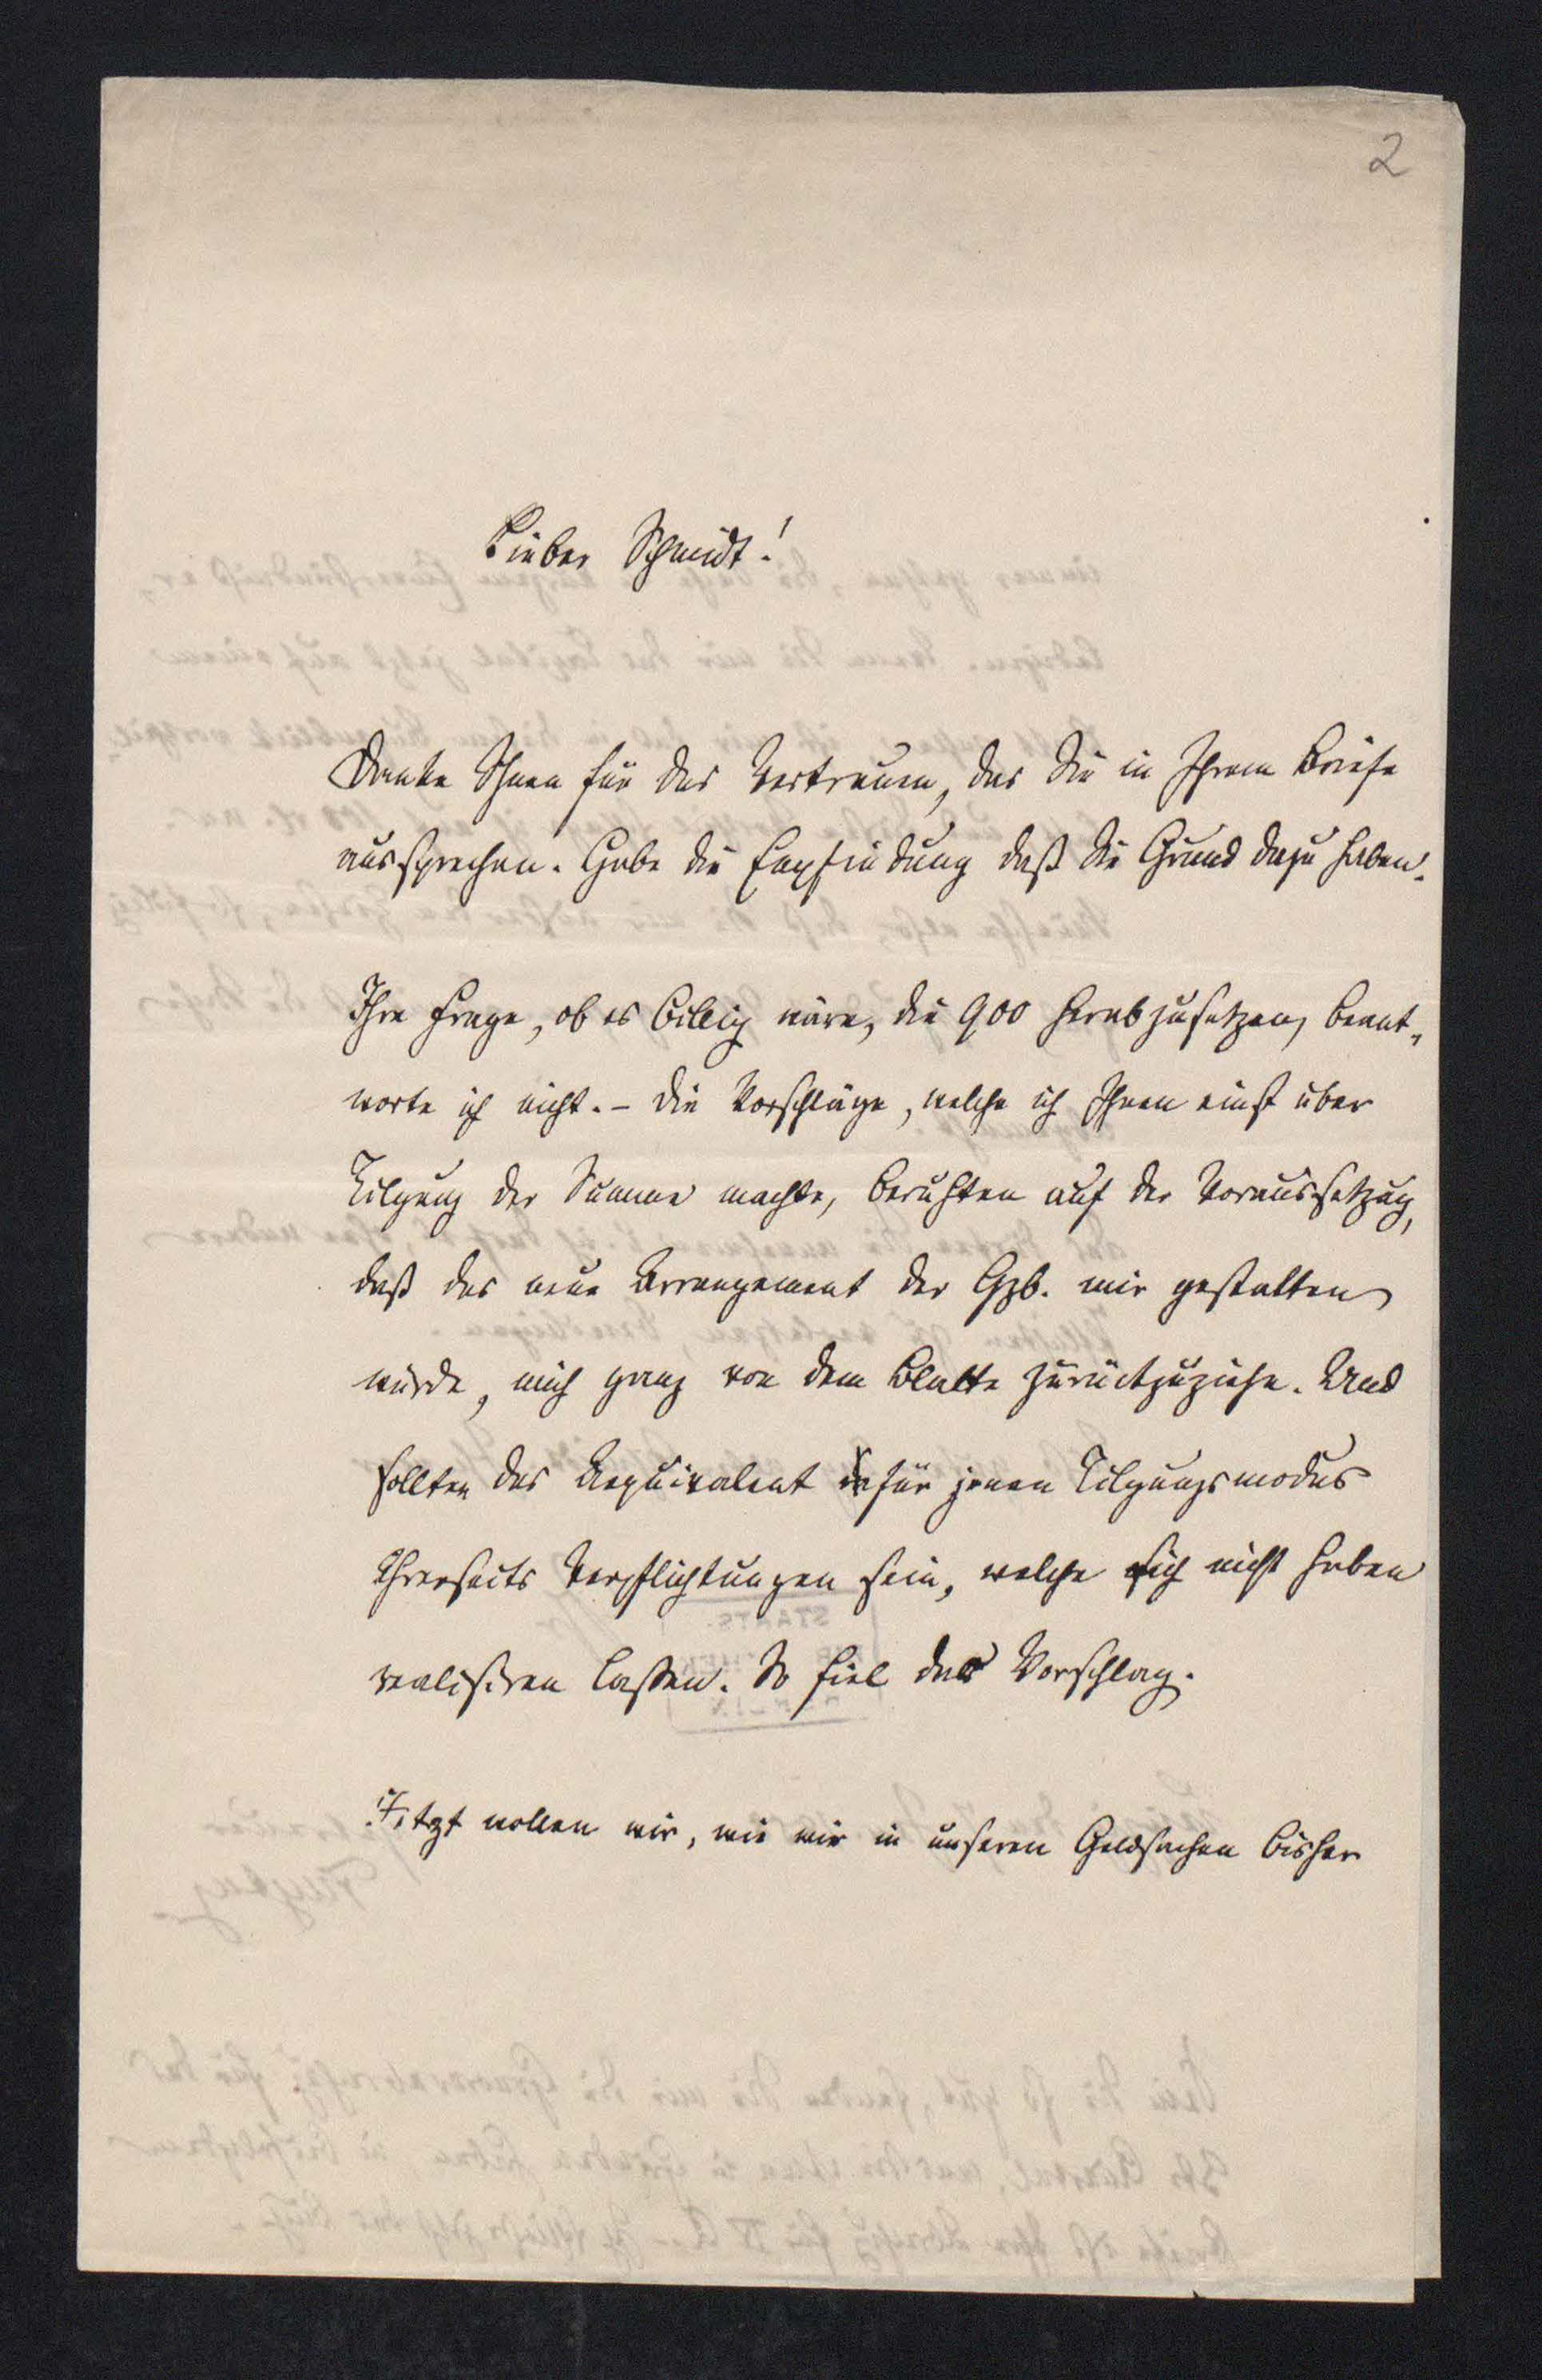 2
Lieber Schmidt!
Danke Ihnen für das Vertrauen, das Sie in Ihrem Briefe
aussprechen. Habe die Empfindung daß Sie Grund dazu haben.
Ihre Frage, ob es billig wäre, die 900 herabzusetzen, beant„
worte ich nicht. – Die Vorschläge, welche ich Ihnen einst über
Tilgung der Summe machte, beruhten auf der Voraussetzug,
daß das neue Arrangement der Gzb. mir gestatten
würde, mich ganz von dem Blatte zurückzuziehn. Und
sollten das Aequivalent für jenen Tilgungsmodus
Ihrerseits Verpflichtungen sein, welche sich nicht haben
realisiren lassen. So fiel der Vorschlag.
Jetzt wollen wir, wie wir in unseren Geldsachen bisher